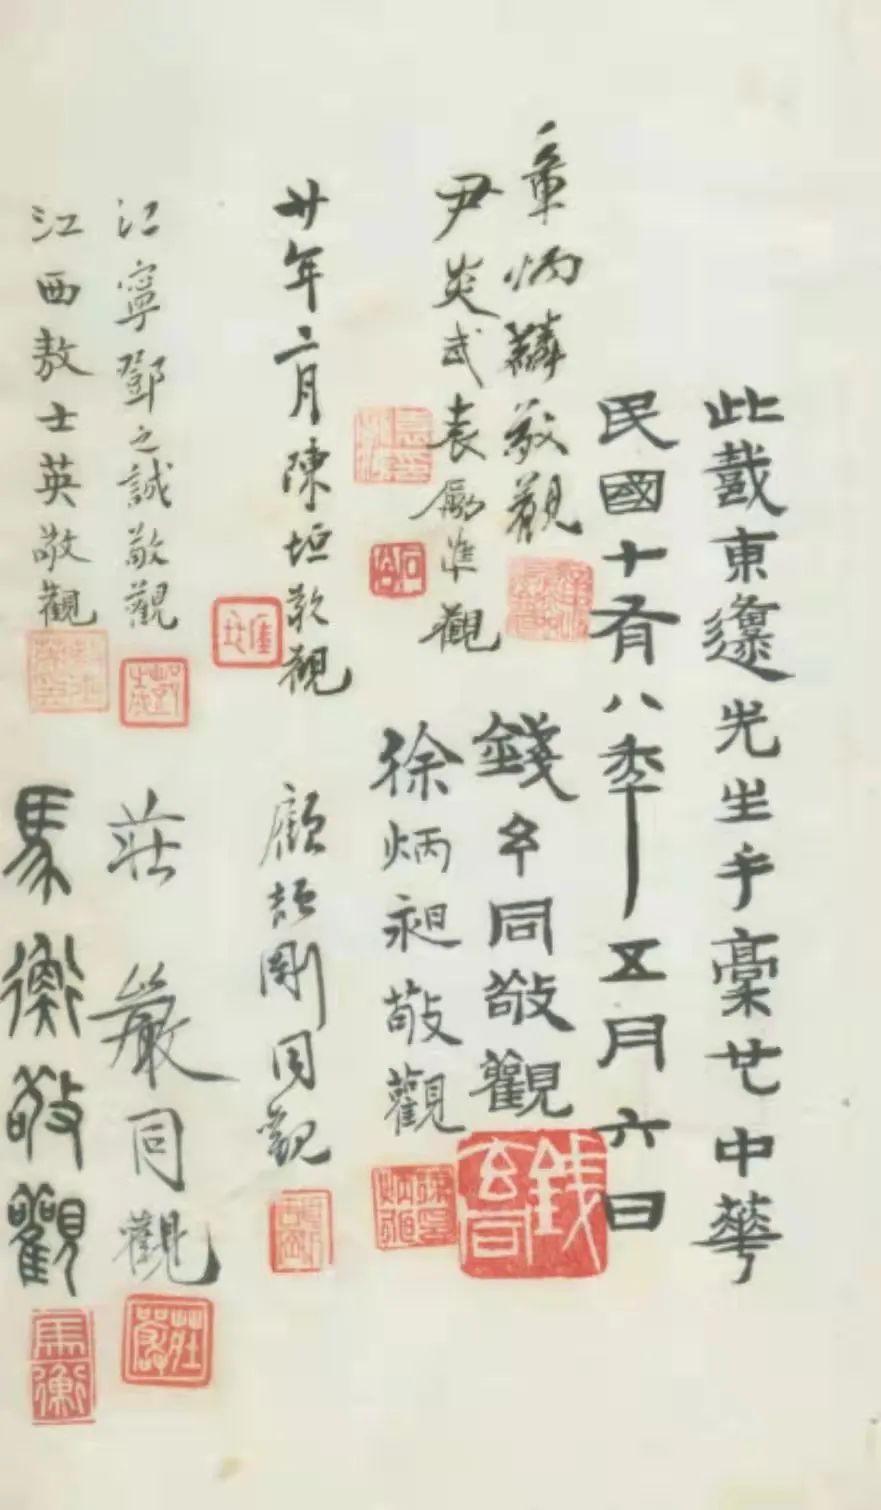 此戴東邍先生手稾也中華
民國十有八秊五月六日
章炳麟敬觀
錢玄同敬觀
錢玄同
尹炎武袁勵準觀
徐炳昶敬觀
廿年二月陳垣敬觀
顧頡剛同觀
江寧鄧之誠敬觀
莊嚴同觀
莊嚴
江西敖士英敬觀
馬衡敬觀
馬衡